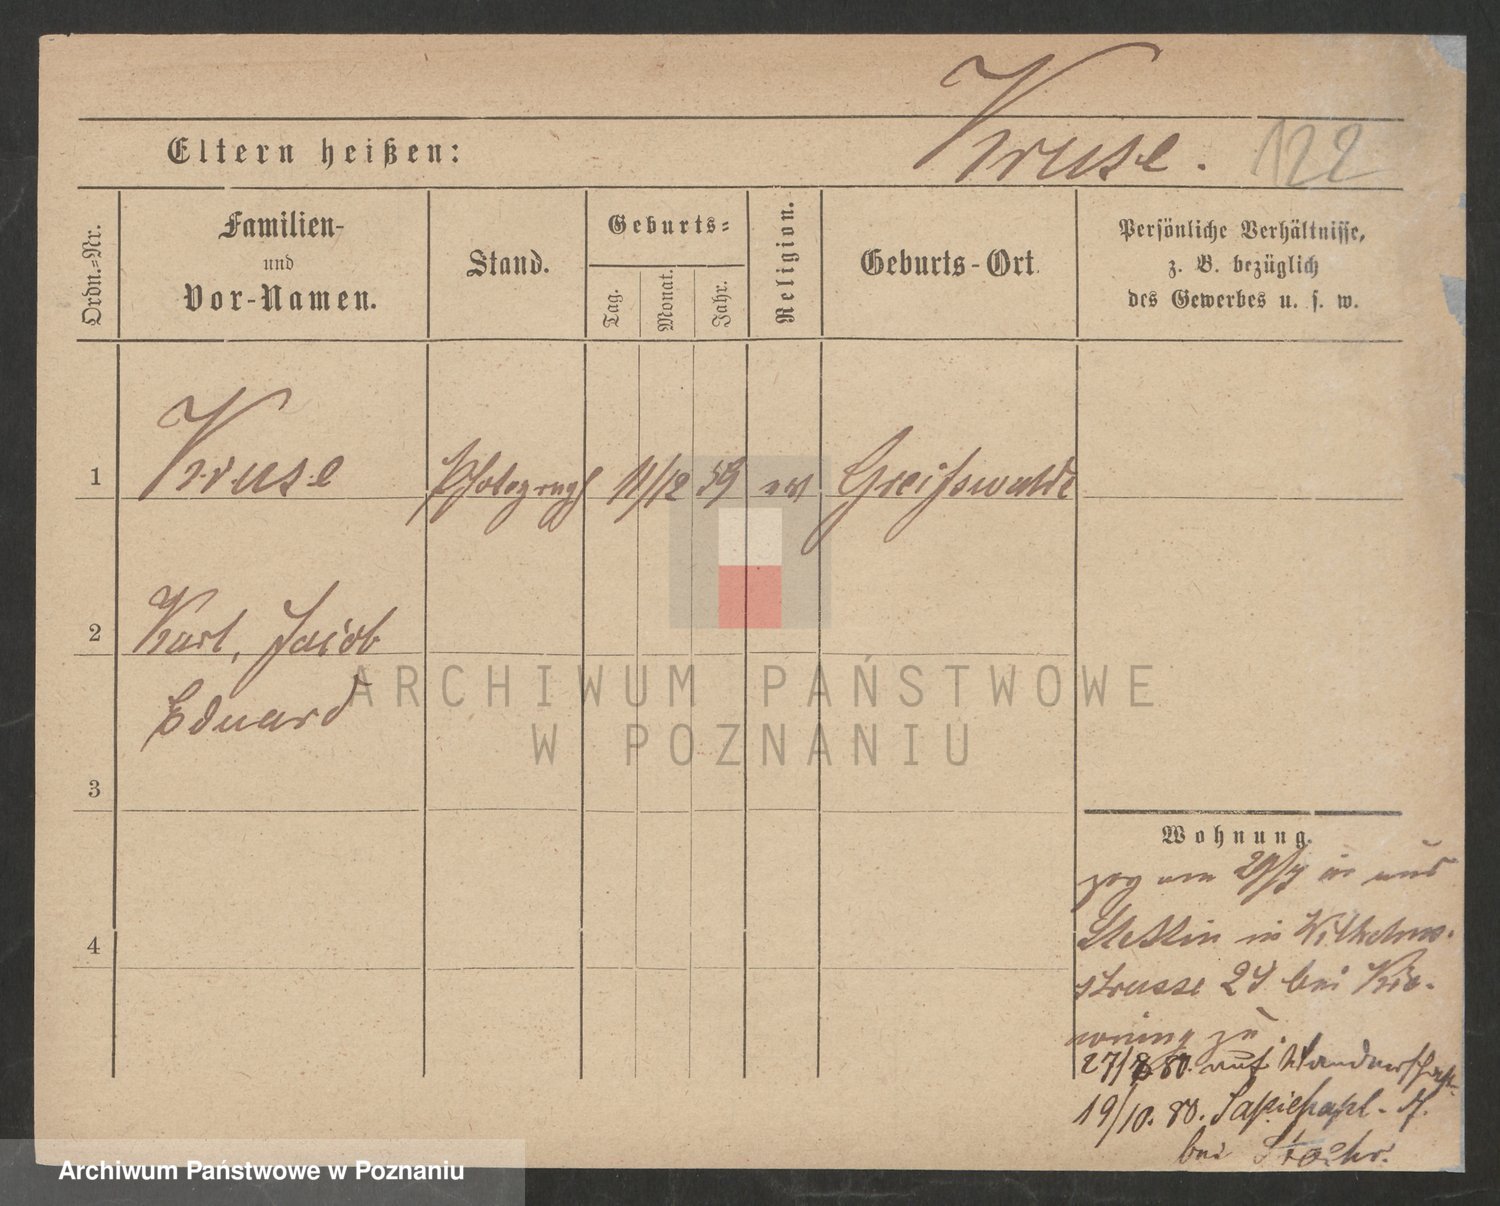 Kruse.
122
Eltern heißen:
Ordn.=Nr.
Familien-
und
Vor-Namen.
Stand.
Geburts=
Tag.
Monat.
Jahr.
Religion.
Geburts-Ort.
Persönliche Verhältnisse,
z. B. bezüglich
des Gewerbes u. s. w.
1
Kruse
Photograph
11/12
59
ev
Greifswalde
2
Karl, Jacob
Eduard
3
4
Wohnung.
zog am 29/7 in aus
Stettin in Wilhelms-
strasse 24 bei
zu
27/8 80. auf Wanderschaft
19/10. 80. Sapiehapl.
bei
ARCHIWUM PAŃSTWOWE
W POZNANIU
Archiwum Państwowe w Poznaniu